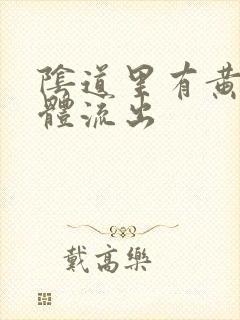 陰道里有黄
體流出
戴高樂